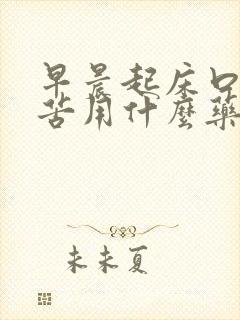 早晨起床口
苦用什麼藥
未未夏